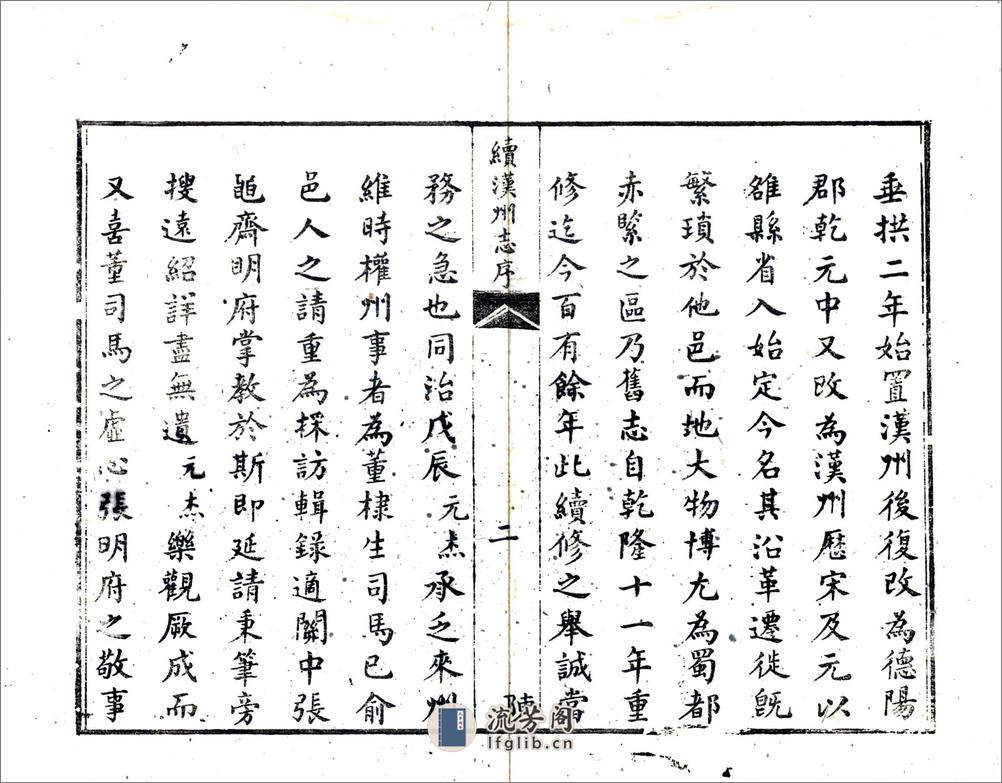 垂拱二年始置漢州後復改為德陽
郡乾元中又改為漢州歷宋及元以
雒縣省入始定今名其沿革遷徙既
繁瑣於他邑而地大物博尤為蜀都
赤緊之區乃舊志自乾隆十一年重
修迄今百有餘年此續修之舉誠當
續漢州志序
二
陳
務之急也同治戊辰元杰承乏來州
維時權州事者為董棣生司馬已俞
邑人之請重為採訪輯錄適關中張
黽齋明府掌教於斯即延請秉筆旁
搜遠紹詳盡無遺元杰樂觀厥成而
又喜董司馬之虛心張明府之敬事
流芳阁
lfglib.cn